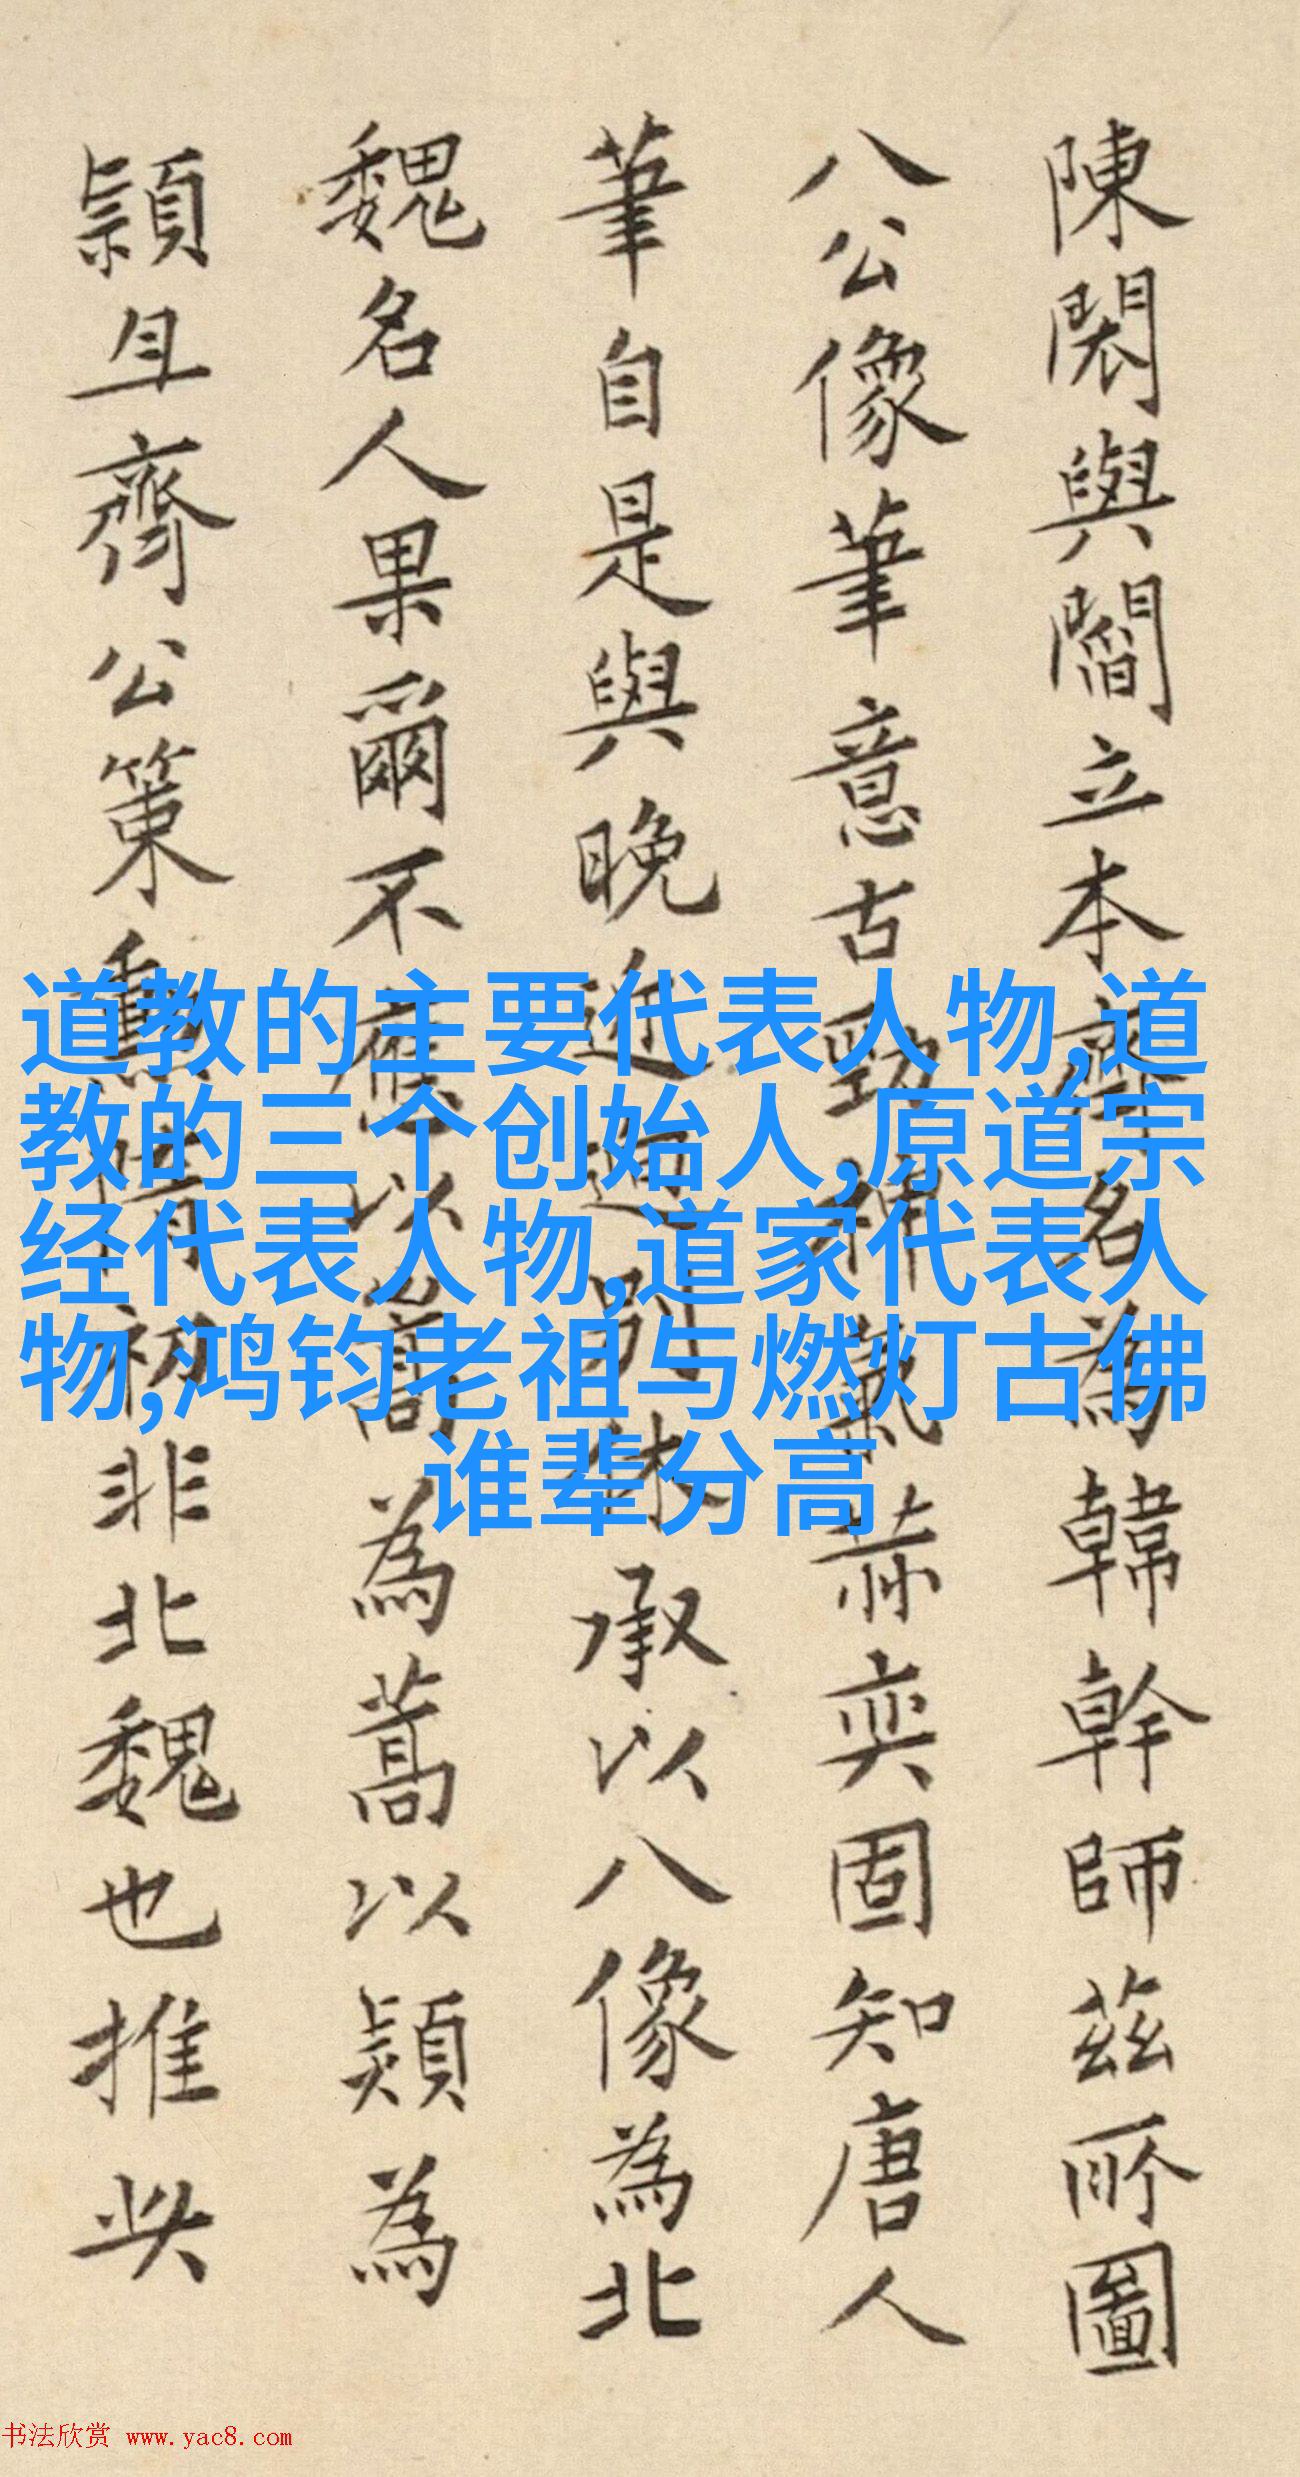 陳閎與閻立本齊名為韓幹師茲所圖
八公像筆意古勁神氣赫奕固知唐人
筆自是與晚近迥別休承以八像為北
魏名人果爾不應以為蒿以熲為
頴且齊公策勳隋初非北魏也推
道教的主要代表人物,道
教的三个创始人,原道宗
经代表人物,道家代表人
物,鸿钧老祖与燃灯古佛
谁辈分高
书法欣赏 www.yac8.com